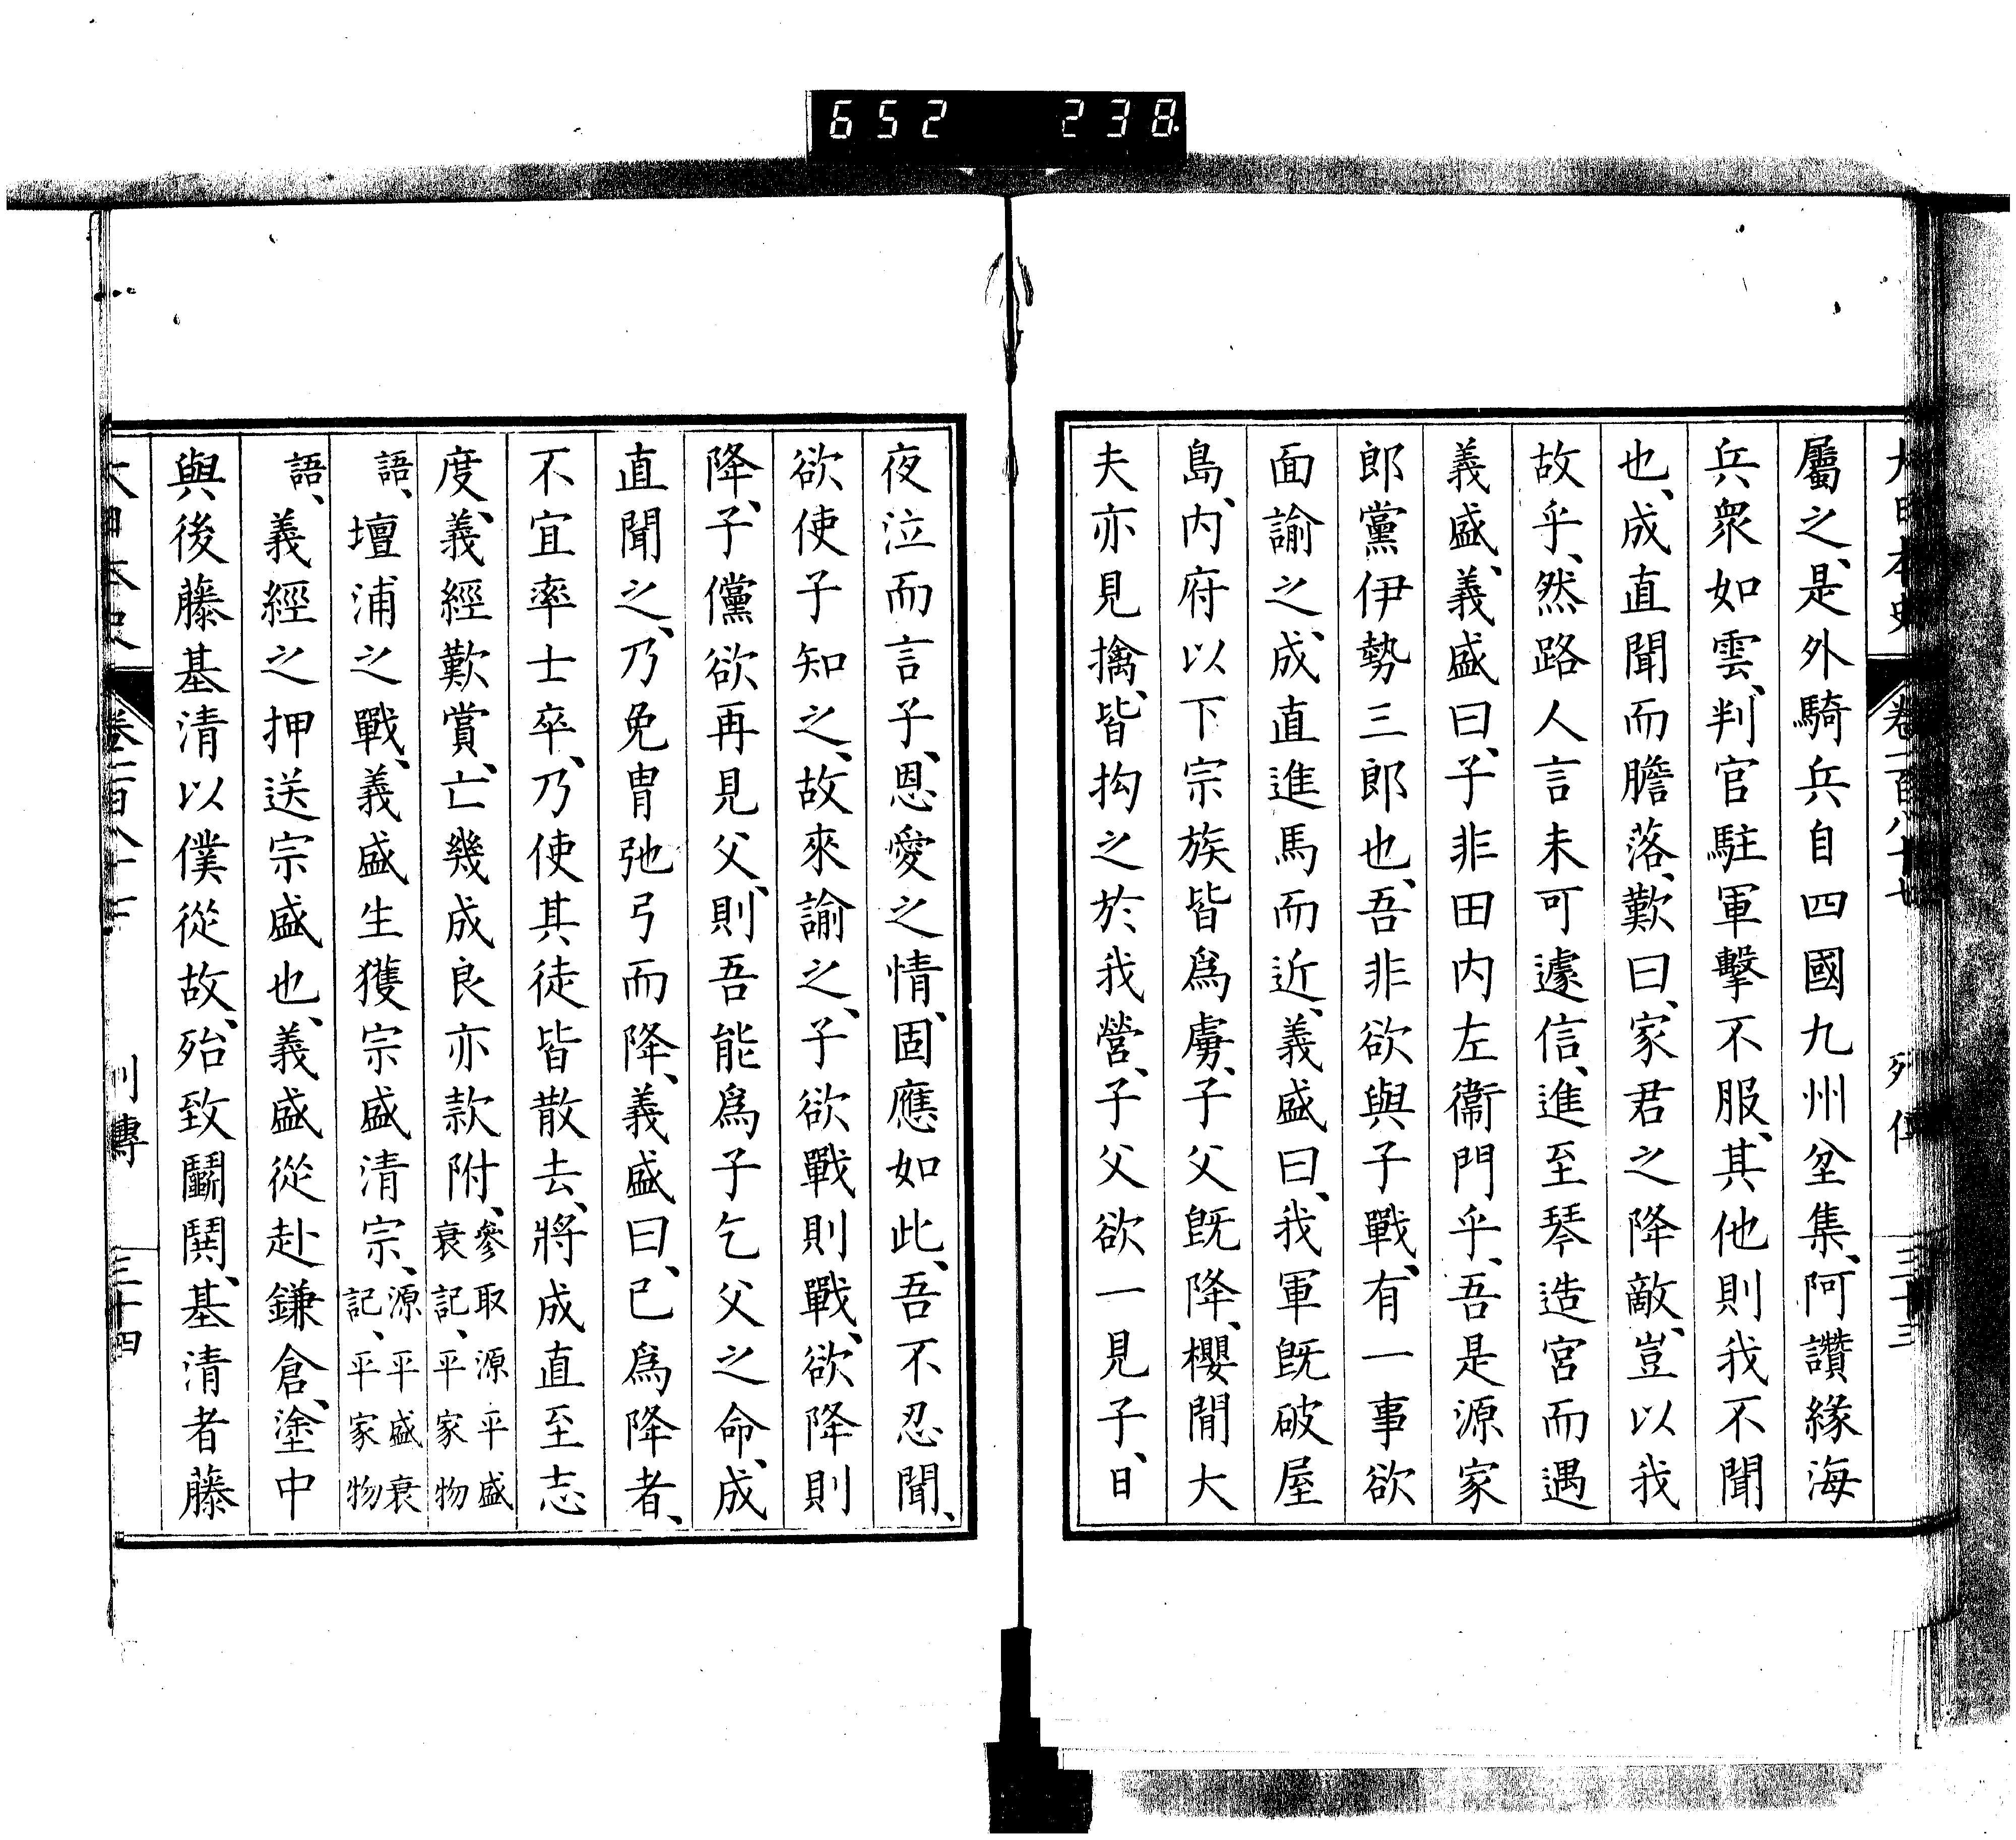 652 238.
大日本史 卷一百八十七 列傳 三十三
屬之、是外騎兵自四國九州坌集、阿讚緣海
兵衆如雲、判官駐軍擊不服、其他則我不聞
也、成直聞而膽落、歎曰、家君之降敵、豈以我
故乎、然路人言未可遽信、進至琴造宮而遇
義盛、義盛曰、子非田内左衞門乎、吾是源家
郎黨伊勢三郎也、吾非欲與子戰、有一事欲
面諭之、成直進馬而近、義盛曰、我軍既破屋
島、内府以下宗族皆爲虜、子父既降、櫻間大
夫亦見擒、皆拘之於我營、子父欲一見子、日
夜泣而言子、恩愛之情、固應如此、吾不忍聞、
欲使子知之、故來諭之、子欲戰則戰、欲降則
降、子儻欲再見父、則吾能爲子乞父之命、成
直聞之、乃免冑弛弓而降、義盛曰、已爲降者、
不宜率士卒、乃使其徒皆散去、將成直至志
度、義經歎賞、亡幾成良亦款附、參取源平盛衰記、平家物
語、壇浦之戰、義盛生獲宗盛清宗、源平盛衰記、平家物
語、義經之押送宗盛也、義盛從赴鎌倉、塗中
與後藤基清以僕從故、殆致鬭鬨、基清者藤
大日本史 卷一百八十七 列傳 三十四